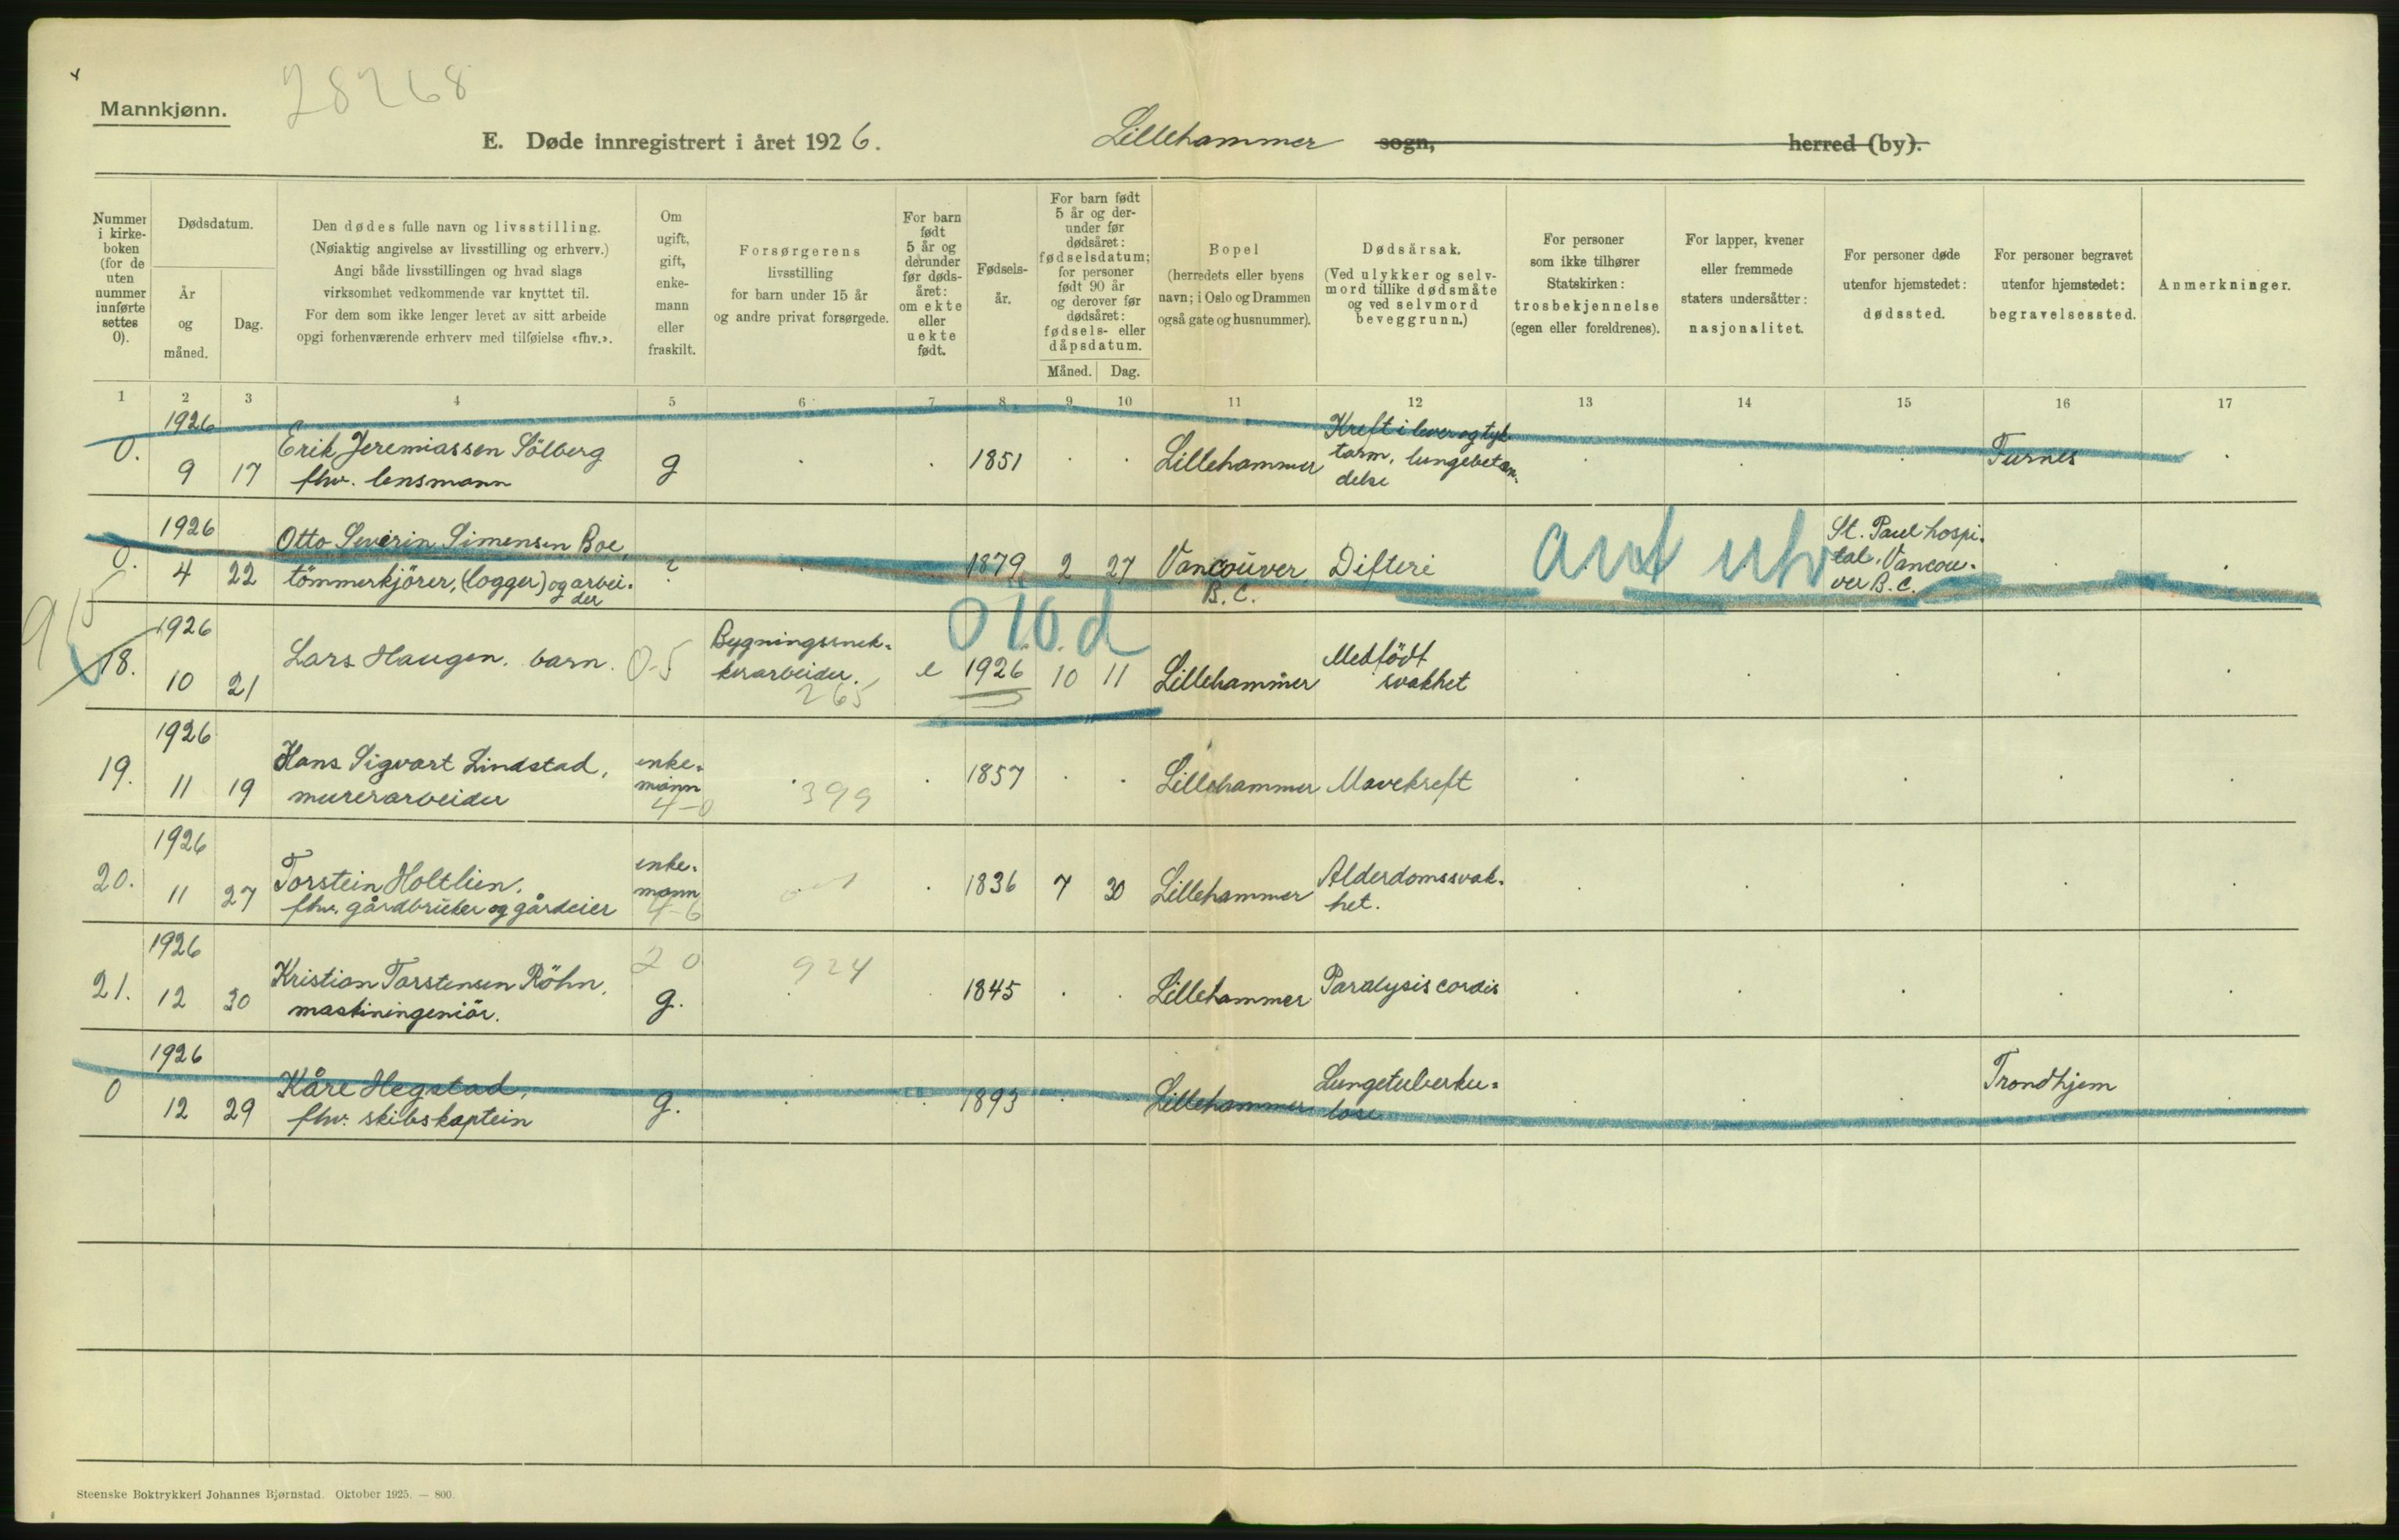 28268
Mannkjønn.
E. Døde innregistrert i året 1926. Lillehammer sogn, herred (by).
Nummer i kirke- boken (for de uten nummer innførte settes 0).
Dødsdatum.
År og måned.
Dag.
Den dødes fulle navn og livsstilling.
(Nøiaktig angivelse av livsstilling og erhverv.)
Angi både livsstillingen og hvad slags
virksomhet vedkommende var knyttet til.
For dem som ikke lenger levet av sitt arbeide
opgi forhenværende erhverv med tilføielse «fhv.».
Om ugift, gift, enke- mann eller fraskilt.
Forsørgerens
livsstilling
for barn under 15 år
og andre privat forsørgede.
For barn født 5 år og derunder før døds- året: om ekte eller uekte født.
Fødsels- år.
For barn født 5 år og der- under før dødsåret: fødselsdatum; for personer født 90 år og derover før dødsåret: fødsels- eller dåpsdatum.
Måned. Dag.
Bopel
(herredets eller byens
navn; i Oslo og Drammen
også gate og husnummer).
Dødsårsak.
(Ved ulykker og selv-
mord tillike dødsmåte
og ved selvmord
beveggrunn.)
For personer
som ikke tilhører
Statskirken:
trosbekjennelse
(egen eller foreldrenes).
For lapper, kvener
eller fremmede
staters undersåtter:
nasjonalitet.
For personer døde
utenfor hjemstedet:
dødssted.
For personer begravet
utenfor hjemstedet:
begravelsessted.
Anmerkninger.
1 2 3 4 5 6 7 8 9 10 11 12 13 14 15 16 17
1926
0. 9 17 Erik Jeremiassen Sölberg
fhv. lensmann
g 1851 Lillehammer
Kreft i lever og tyk-
tarm, lungebeten-
delse
Furnes
1926
0. 4 22 Otto Severin Simensen Boe,
tömmerkjörer, (logger) og arbei-
der
? 1879 2 27 Vancouver
B. C.
Difteri
St. Paul hospi-
tal, Vancou-
ver B. C.
915
1926
18. 10 21 Lars Haugen, barn. 0-5
Bygningssnek-
kerarbeider.
265
e 1926 10 11 Lillehammer
Medfödt
svakhet
1926
19. 11 19 Hans Sigvart Lindstad,
murerarbeider
enke-
mann
4-0
399
1857 Lillehammer Mavekreft
1926
20. 11 27 Torstein Holtlien,
fhv. gårdbruker og gårdeier
enke-
mann
4-6
1836 7 30 Lillehammer
Alderdomssvak-
het.
1926
21. 12 30 Kristian Torstensen Röhn,
maskiningeniör.
20
g.
924
1845 Lillehammer Paralysis cordis
1926
0 12 29 Kåre Hegstad,
fhv. skibskaptein
g. 1893 Lillehammer
Lungetuberku-
lose
Trondhjem
Steenske Boktrykkeri Johannes Bjørnstad. Oktober 1925. — 800.